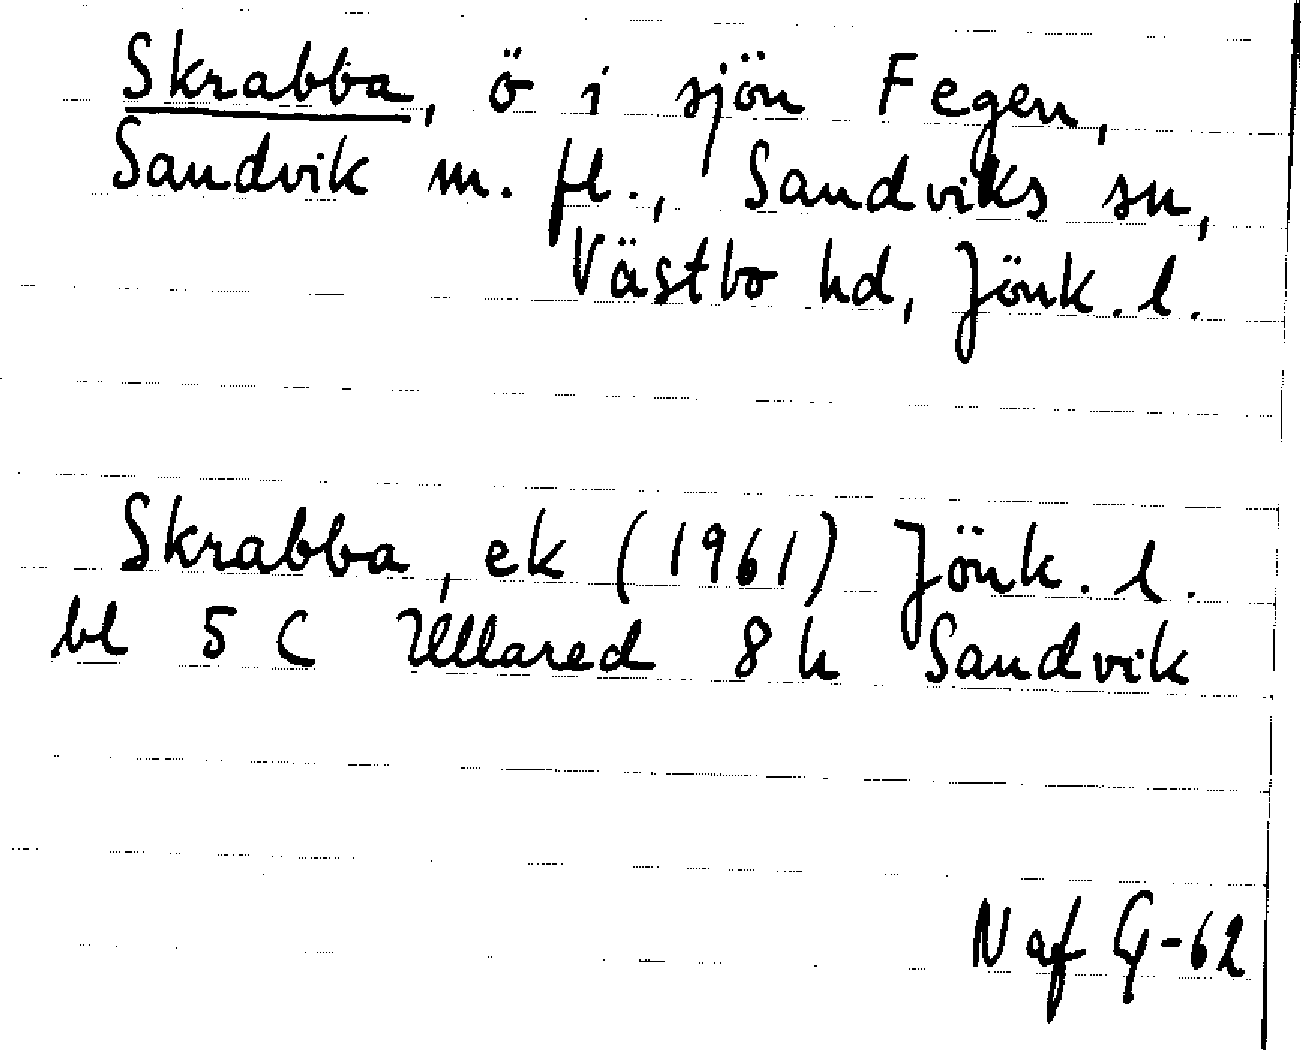 Skrabba, ö i sjön Fegen,
Sandvik m. fl., Sandviks sn,
Västbo hd, Jönk. l.
Skrabba, ek (1961) Jönk. l.
bl 5 C Ullared 8 h Sandvik
N af G-62